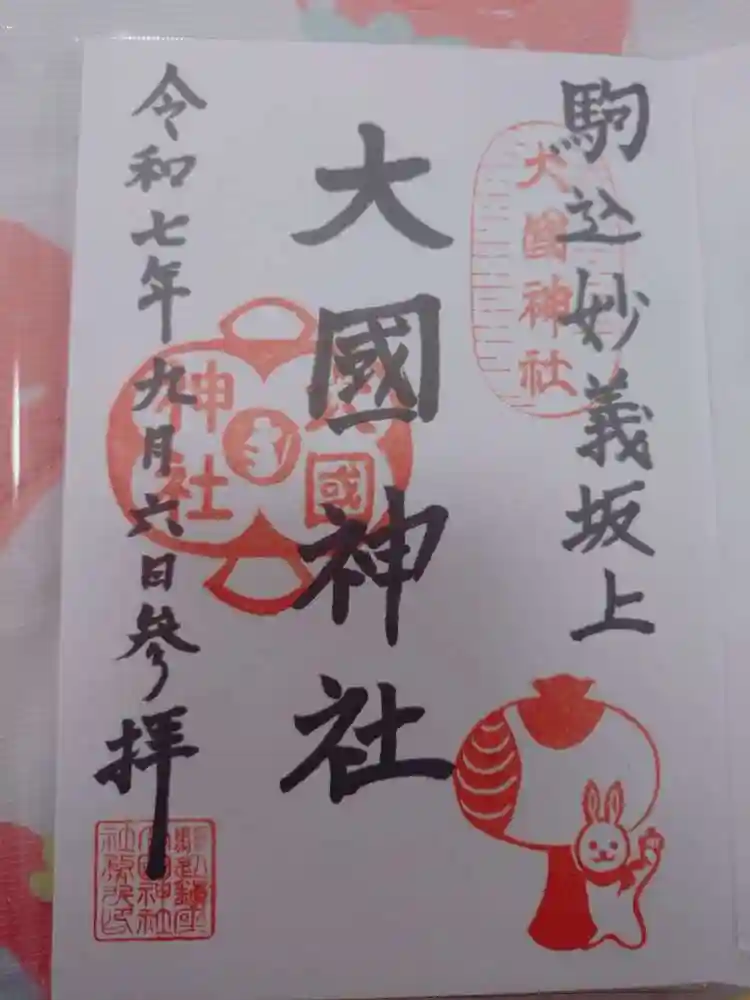 駒込妙義坂上
大國神社
大國神社
大國神社
令和七年九月六日参拜